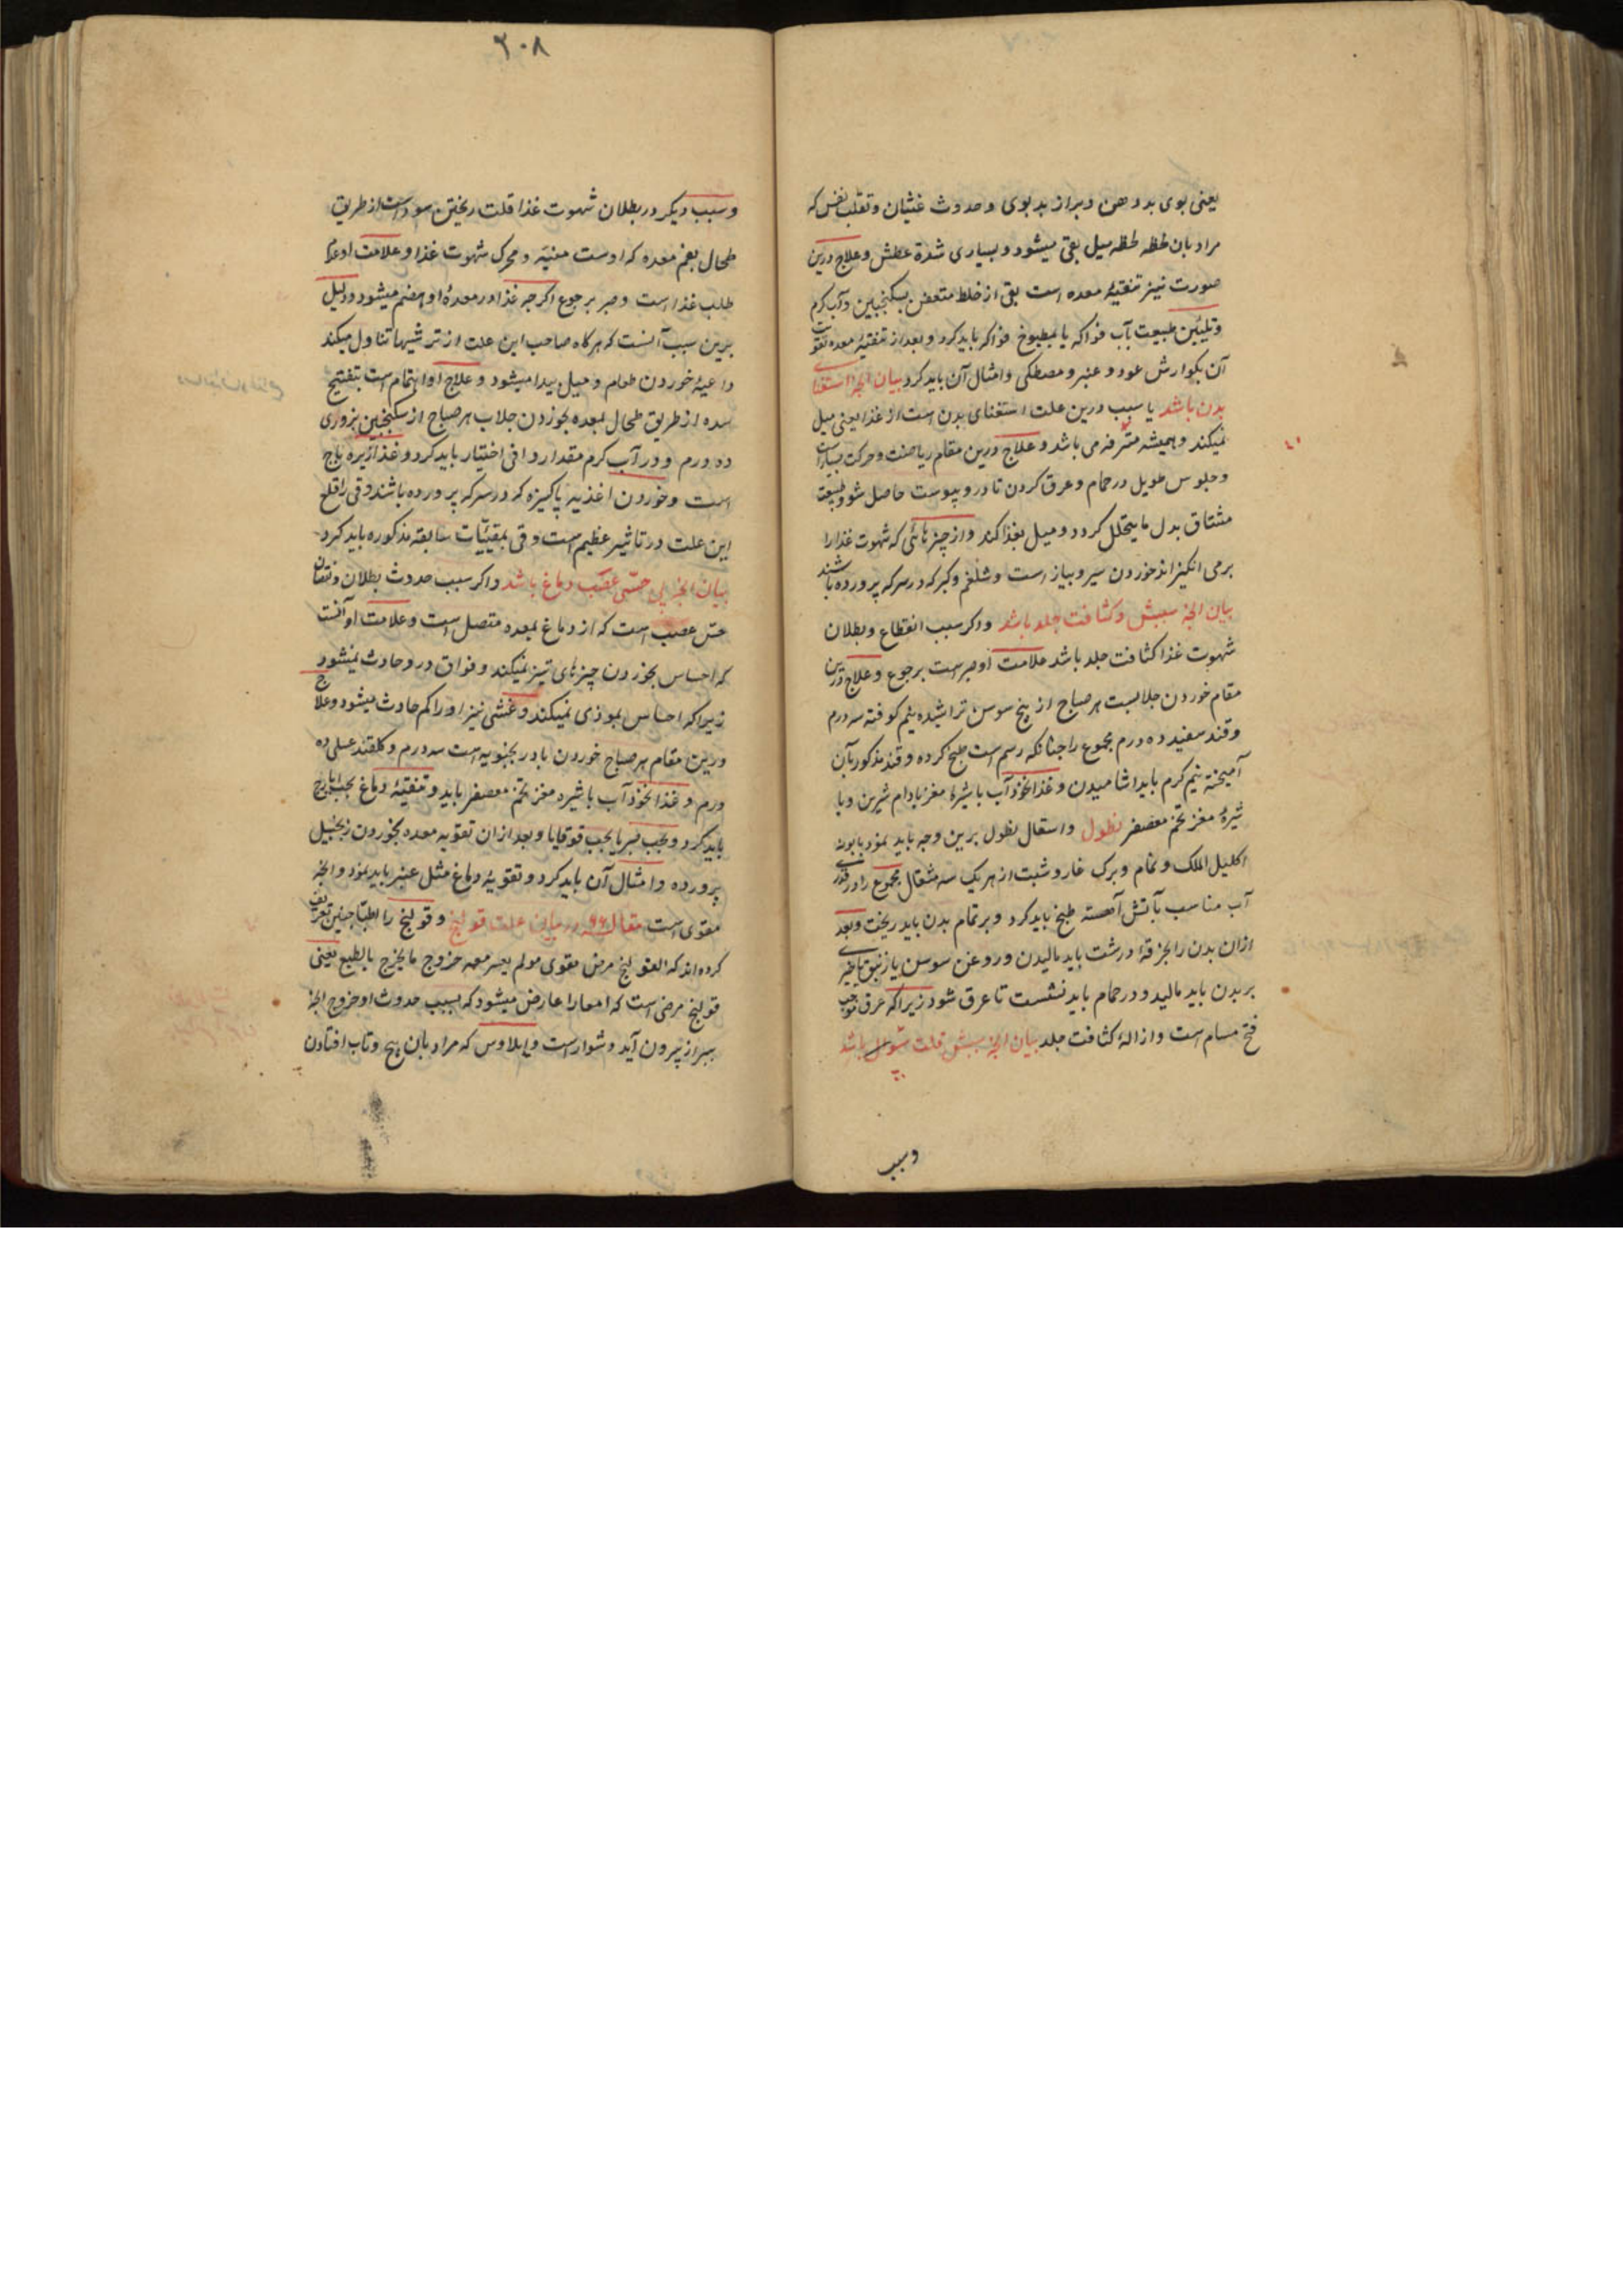 یعنی بوی بد دهن و براز بد بوی و حدوث غثیان و تقلب نفس که
مراد بان لحظه لحظه میل بقی میشود و بسیاری شدة عطش و علاج درین
صورت نیز تنقیهٔ معده است بقی از خلط متعفن بسکنجبین و آب کرم
و تلیین طبیعت بآب فواکه یا بمطبوخ فواکه باید کرد و بعد از تنقیهٔ معده تقویت
آن بکوارش عود و عنبر و مصطکی و امثال آن باید کرد بیان انجه استغنای
بدن باشد یا سبب درین علت استغنای بدن است از غذا یعنی میل
نمیکند و همیشه مترفه می باشد و علاج درین مقام ریاضت و حرکت بسیارست
و جلوس طویل در حمام و عرق کردن تا درو یبوست حاصل شود و طبیعت
مشتاق بدل ما یتحلل کردد و میل بغذا کند و از چیزهائی که شهوت غذا را
برمی انکیزاند خوردن سیر و پیاز است و شلغم و کبر که در سرکه پرورده باشند
بیان انجه سببش کثافت جلد باشد و اکر سبب انقطاع و بطلان
شهوت غذا کثافت جلد باشد علامت او صبرست بر جوع و علاج درین
مقام خوردن جلابست هر صباح از بیخ سوسن تراشیده نیم کوفته سه درم
و قند سفید ده درم مجموع را چنانکه رسم است طبخ کرده و قند مذکور بآن
آمیخته نیم کرم باید اشامیدن و غذا نخودآب با شیرهٔ مغز بادام شیرین و با
شیرهٔ مغز تخم معصفر نطول و استعمال نطول برین وجه باید نمود بابونه
اکلیل الملک و نمام و برک غار و شبت از هر یک سه مثقال مجموع را در قدری
آب مناسب بآتش آهسته طبخ باید کرد و بر تمام بدن باید ریخت و بعد
ازان بدن را بخرقهٔ درشت باید مالیدن و روغن سوسن یا زنبق
بر بدن باید مالید و در حمام باید نشست تا عرق شود زیرا که عرق موجب
فتح مسام است و ازالهٔ کثافت جلد بیان انجه سببش قلت باشد
وسبب
۲۰۸
و سبب دیکر در بطلان شهوت غذا قلت ریختن سوداست از طریق
طحال بفم معده که اوست منبّه و محرک شهوت غذا و علامت او عدم
طلب غذا است و صبر بر جوع اکرچه غذا در معدهٔ او هضم میشود و دلیل
برین سبب آنست که هرکاه صاحب این علت از ترشیها تناول میکند
داعیهٔ خوردن طعام و میل پیدا میشود و علاج او اهتمام است بتفتیح
سده از طریق طحال بمعده بخوردن جلاب هر صباح از سکنجبین بزوری
ده درم و در آب کرم مقدار وافی اختیار باید کرد و غذا زیره باج
است و خوردن اغذیهٔ پاکیزه که در سرکه پرورده باشند و قی را قلع
این علت در تاثیر عظیم است و قی بمقیّیات سابقه مذکوره باید کرد
بیان انجه حسّی عصب دماغ باشد و اکر سبب حدوث بطلان و نقصان
حس عصب است که از دماغ بمعده متصل است و علامت او آنست
که احساس بخوردن چیزهای تیز نمیکند و فواق درو حادث نمیشود
زیرا که احساس بموذی نمیکند و غشی نیز او را کم حادث میشود و علاج
درین مقام هر صباح خوردن بادرنجبویه است سه درم و کلقند عسلی ده
درم و غذا نخودآب با شیره مغز تخم معصفر باید و تنقیهٔ دماغ بحب ایارج
باید کرد و بحب صبر یا بحب قوقایا و بعد ازان تقویه معده بخوردن زنجبیل
پرورده و امثال آن باید کرد و تقویهٔ دماغ مثل عنبر باید نمود و انجه
مقوی است مقاله ۶۶ در بیان علت قولنج و قولنج را اطبا چنین تعریف
کرده اند که القولنج مرض معوی مولم یعسر معه خروج ما یخرج بالطبع یعنی
قولنج مرضی است که امعا را عارض میشود که بسبب حدوث او خروج انجه
ببراز بیرون آید دشوار است و ایلاوس که مراد بان پیچ و تاب افتادن